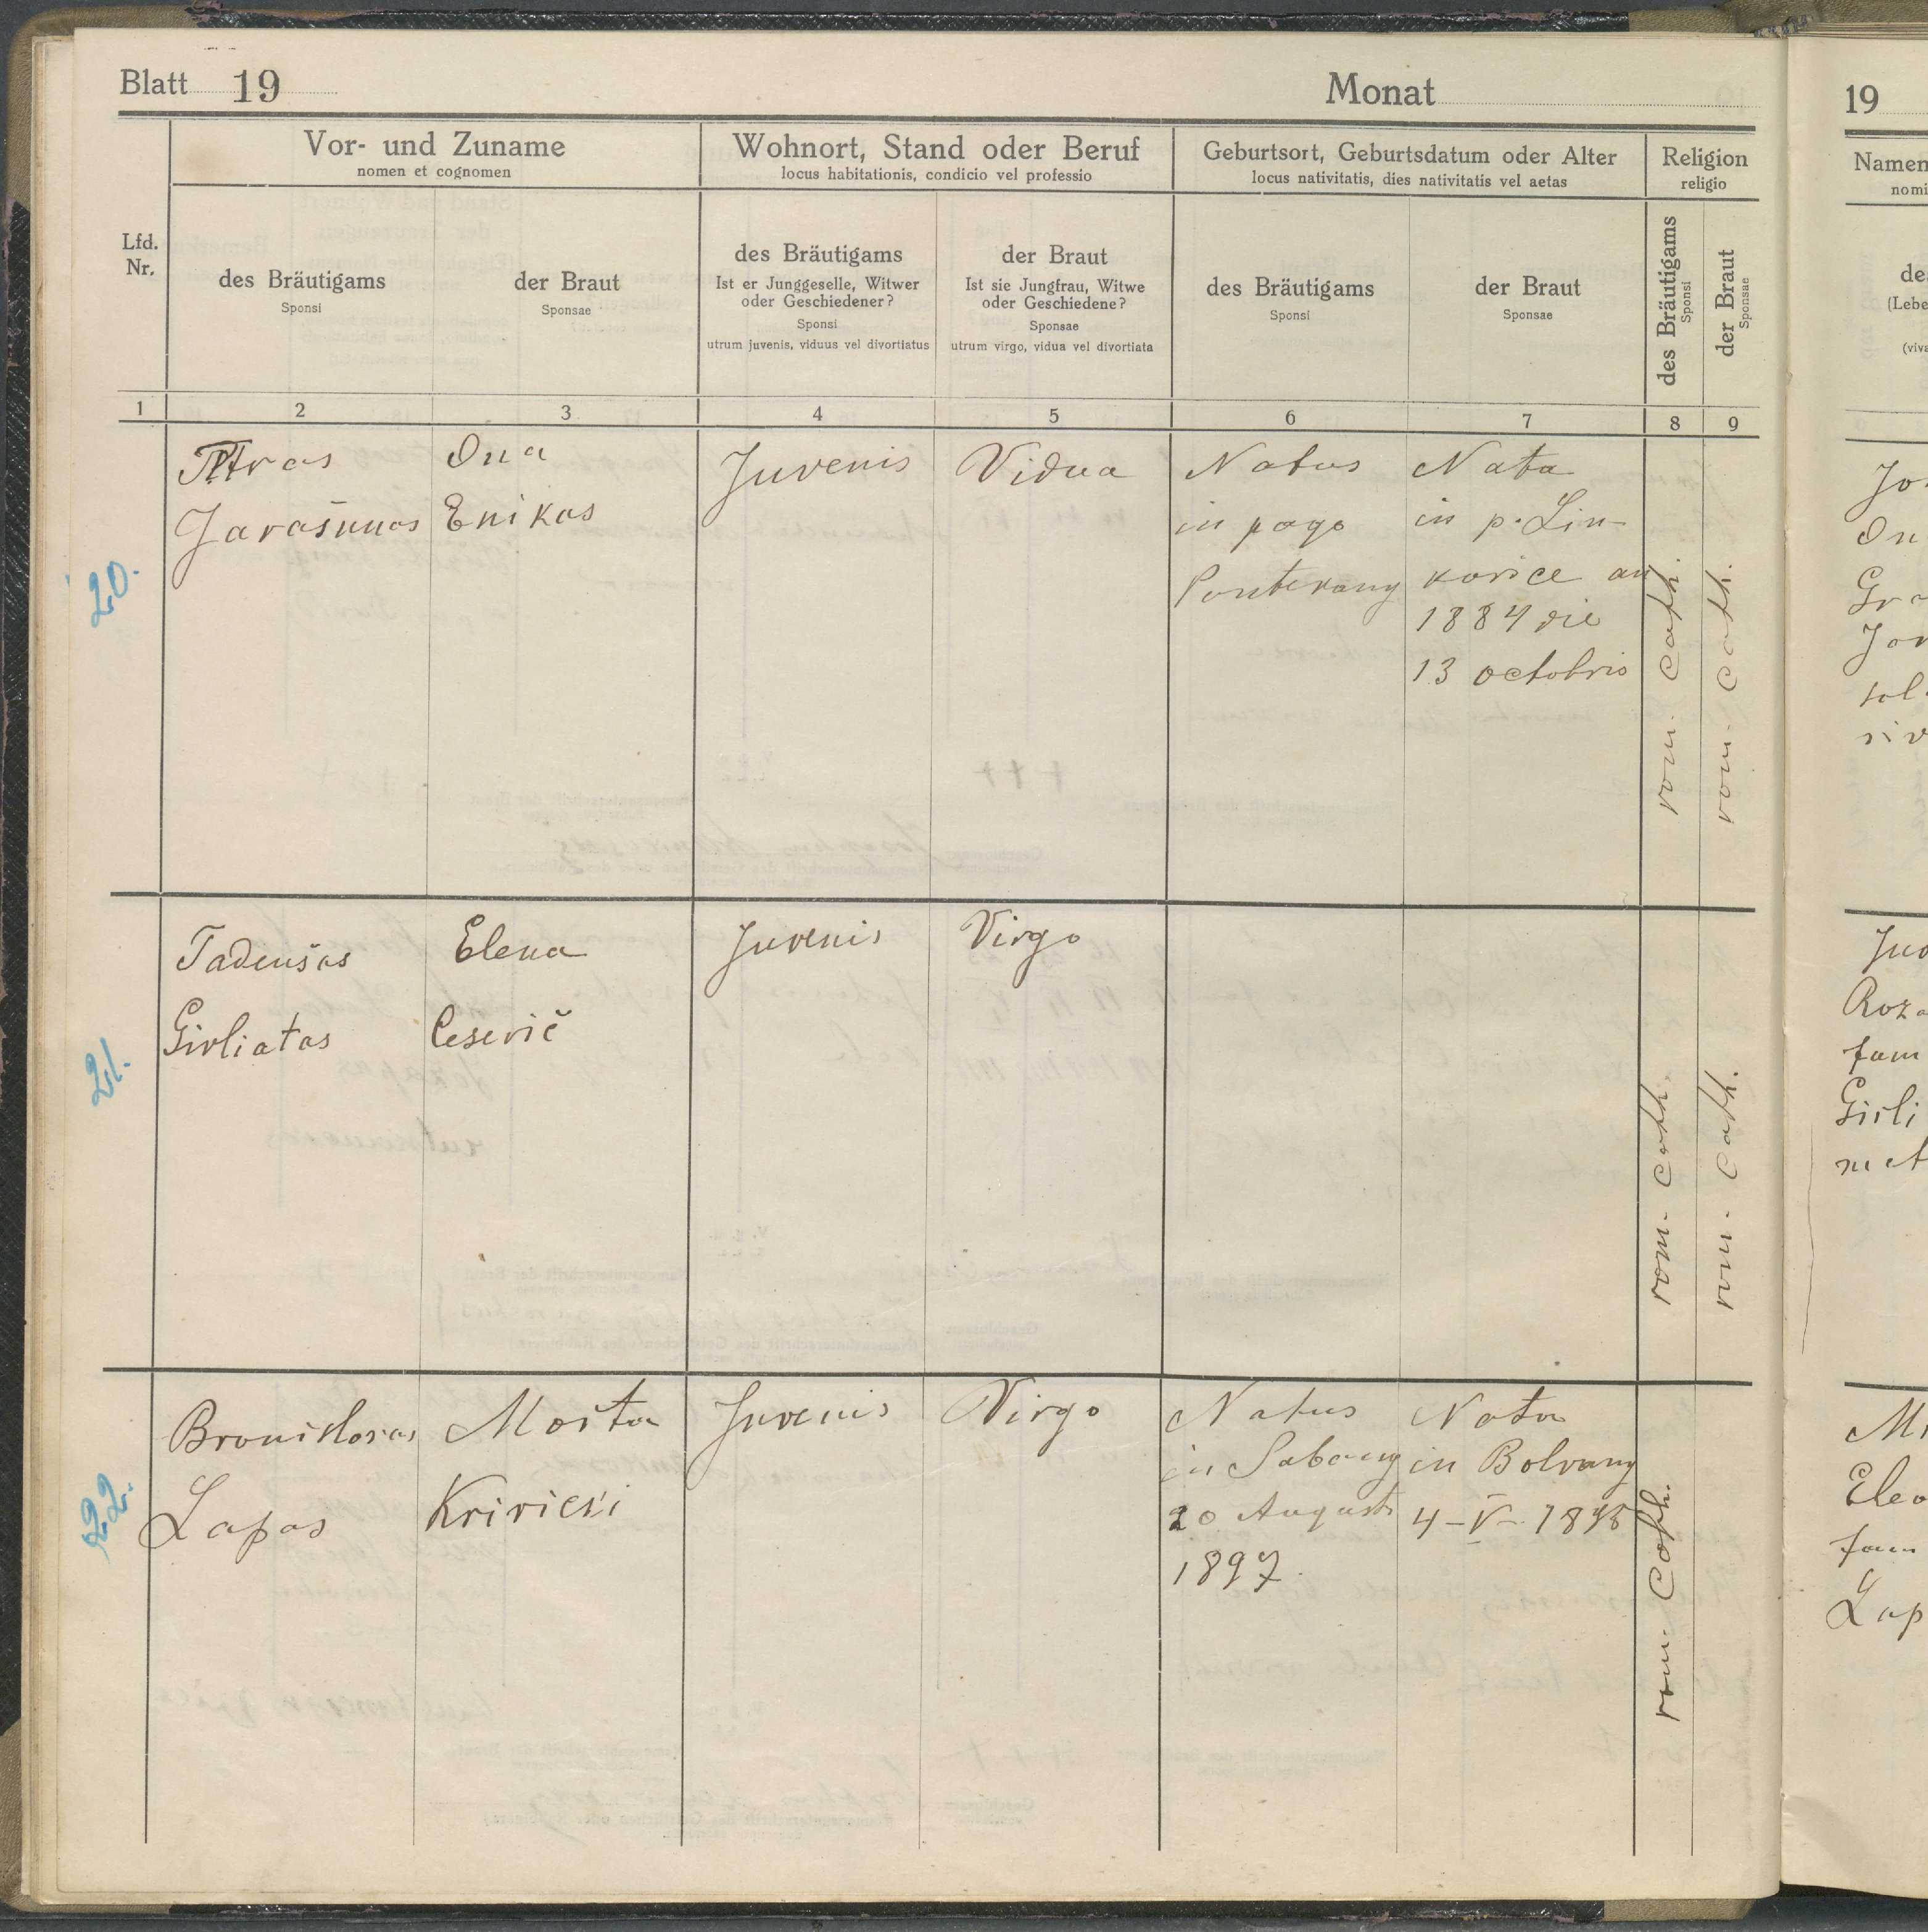 Blatt 19
Monat
Vor- und Zuname
nomen et cognomen
Wohnort, Stand oder Beruf
locus habitationis, condicio vel professio
Geburtsort, Geburtsdatum oder Alter
locus nativitatis, dies nativitatis vel aetas
Religion
religio
Lfd.
Nr.
des Bräutigams
Sponsi
der Braut
Sponsae
des Bräutigams
Ist er Junggeselle, Witwer
oder Geschiedener?
Sponsi
utrum juvenis, viduus vel divortiatus
der Braut
Ist sie Jungfrau, Witwe
oder Geschiedene?
Sponsae
utrum virgo, vidua vel divortiata
des Bräutigams
Sponsi
der Braut
Sponsae
des Bräutigams
Sponsi
der Braut
Sponsae
1 2 3 4 5 6 7 8 9
20.
Ptras
Jarašunas
Ona
Enikas
Juvenis
Vidua
Natus
in pago
Nata
in p. Lin-
korice an
1884 die
13 octobris
rom. cath.
rom. cath.
21.
Tadeušas
Girliatas
Elena
Cesevič
Juvenis
Virgo
rom. cath.
rom. cath.
22.
Bronislovas
Lapas
Morta
Juvenis
Virgo
Natus
in
20 Augusti
1897
Nata
in Bolvany
4-V-
rom. Cath.
19
Namen
nomi
de
(Lebe
(viva
Jo
On
Gra
Jar
sol
siv
Juo
Roza
fam
Girli
nat
Mi
Eleo
fam
Lap